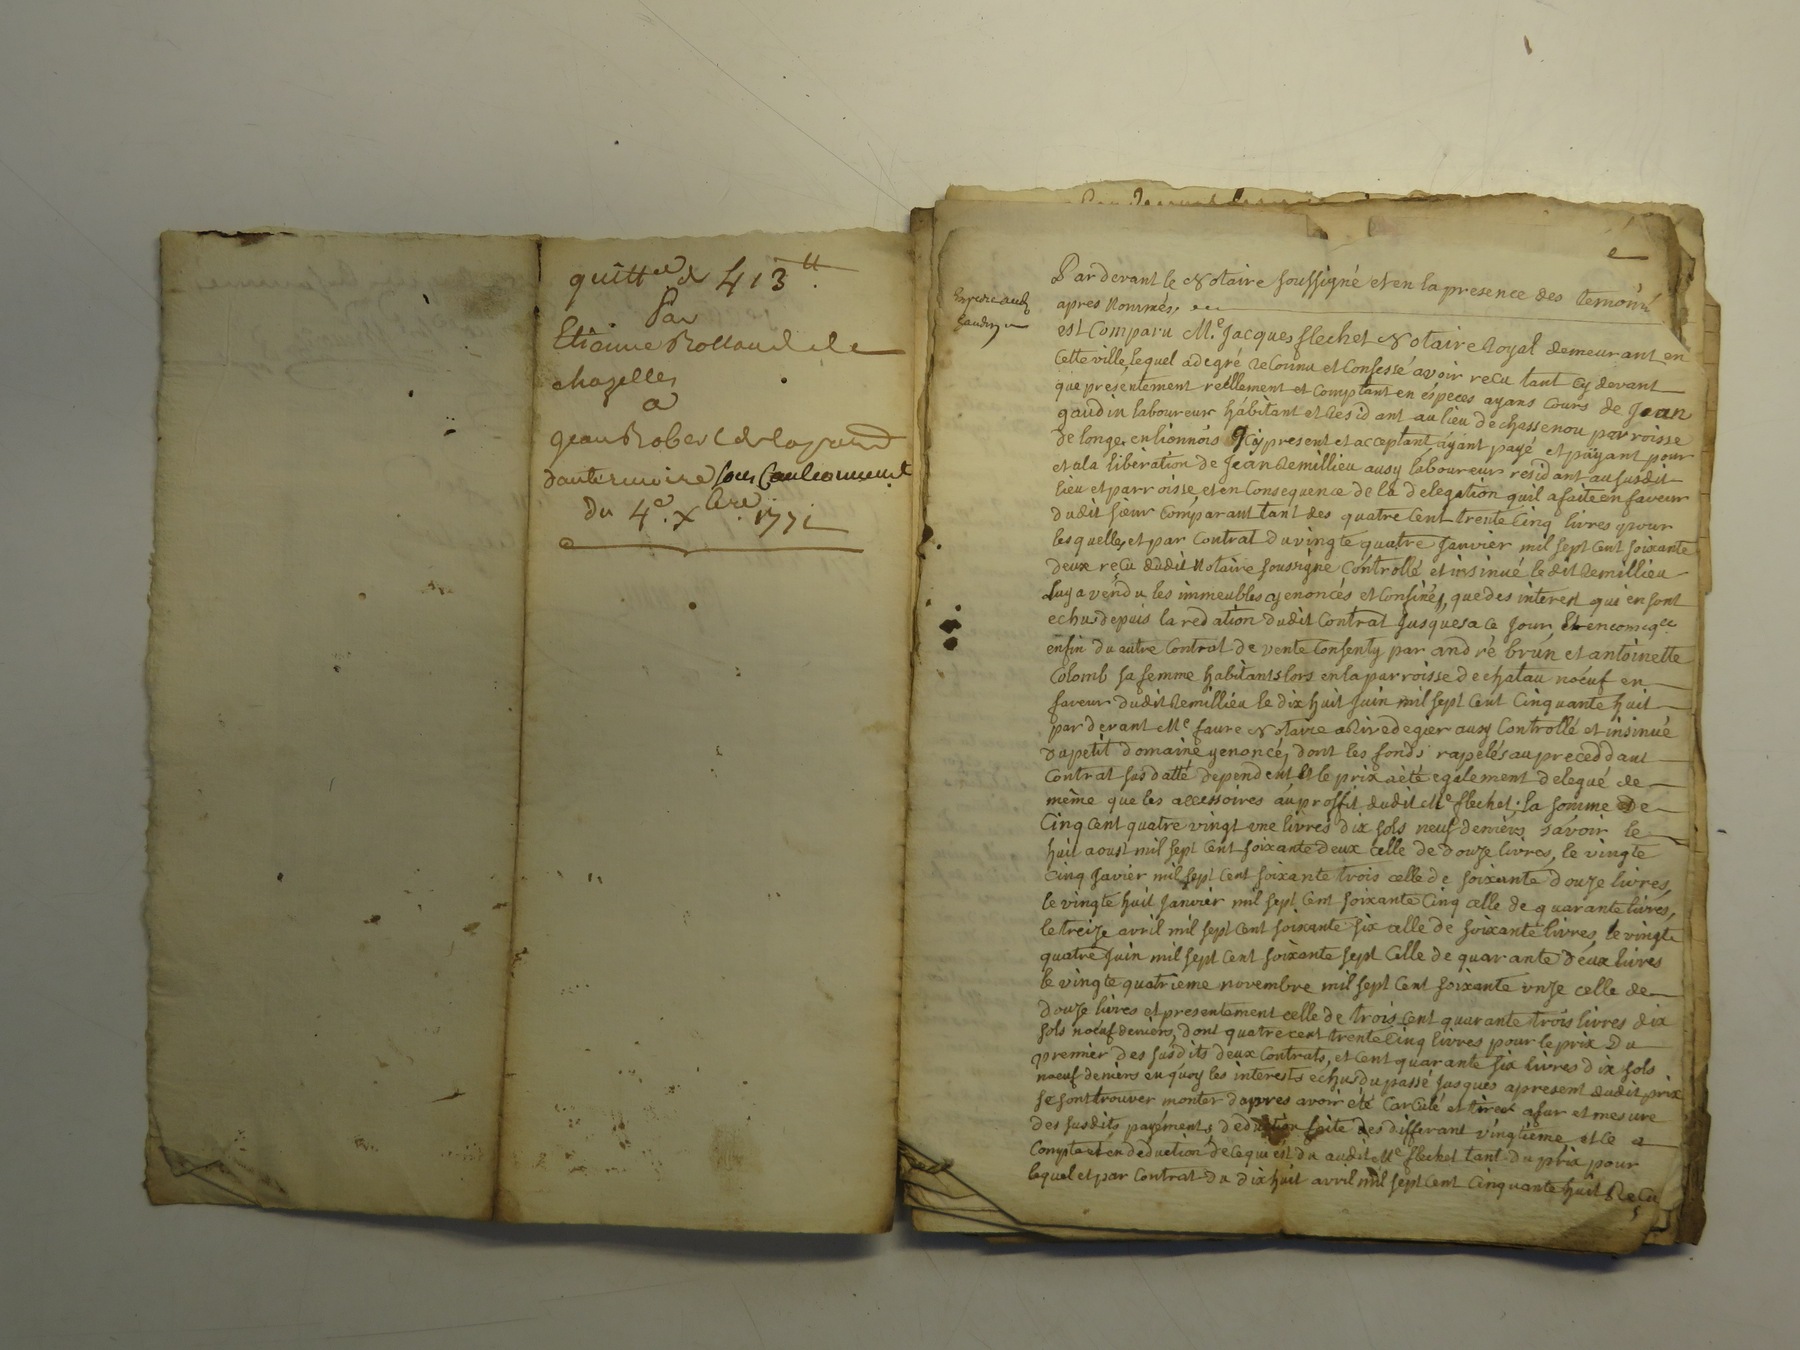 quittce de 413 ll.
Par
Etienne Rolland de
chazelles
a
Jean Robert de
sous Cautionnement
du 4e. Xbre. 1771
Par devant le Notaire soussigné et en la presence des temoins
apres Nommés.
est Comparu Me. Jacques flechet Notaire Royal demeurant en
Cette ville, lequel a degré reconnu et Confessé avoir recu tant cy devant
que presentement reéllement et Comptant en éspeces ayans Cours de Jean
gaudin laboureur hábitant et Residant au lieu de chassenou parroisse
de longe, en lionnois icy present et acceptant áyant payé et páyant pour
et a la libération de Jean Remillieu aussy laboureur residant au susdit
lieu et parroisse et en Consequence de la delegation quil a faite en faveur
dudit sieur Comparant tant des quatre Cent trente Cinq livres pour
lesquelles et par Contrat du vingte quatre Janvier mil sept Cent soixante
deux reçu dudit Notaire soussigné Controllé et insinué ledit Remillieu
luy a vendu les immeubles y enoncés et Confinés, que des interest qui en sont
echus depuis la redation dudit Contrat Jusques a ce Jour Et
enfin du autre Contrat de vente Consenty par andré brun et antoinette
Colomb sa femme habitants lors en la parroisse de chatau noeuf en
faveur dudit Remillieu le dix huit Juin mil sept Cent Cinquante huit
par devant Me faure Notaire a Rivedegier aussy Controllé et insinué
du petit domaine y enoncé, dont les fonds rapelés au preceddant
Contrat susdatté dependent Et le prix a été egalement delegué de
même que les accessoires au proffit dudit Me flechet; la somme De
Cinq Cent quatre vingt une livres dix sols neuf deniers savoir le
huit aoust mil sept Cent soixante deux celle de douze livres, le vingte
Cinq Javier mil sept Cent soixante trois celle de soixante douze livres,
le vingte huit Janvier mil sept Cent soixante Cinq celle de quarante livres,
le treize avril mil sept Cent soixante six celle de soixante livres, le vingte
quatre Juin mil sept Cent soixante sept Celle de quarante deux livres
le vingte quatrieme novembre mil sept Cent soixante unze celle de
douze livres et presentement celle de trois Cent quarante trois livres dix
sols noeuf deniers, dont quatre cent trente Cinq livres pour le prix Du
premier des susdits deux Contrats, et Cent quarante six livres dix sols
noeuf deniers en quoy les interests echus du passé Jusques apresent dudit prix
se sont trouver monter dapres avoir été Carculé et tirés afur et mesure
des susdits payements deduction faite des differant vingtieme et ce a
Compte et en deduction de ce qui est du audit Me flechet tant du prix pour
lequel et par Contrat du dix huit avril mil sept Cent Cinquante huit Recu